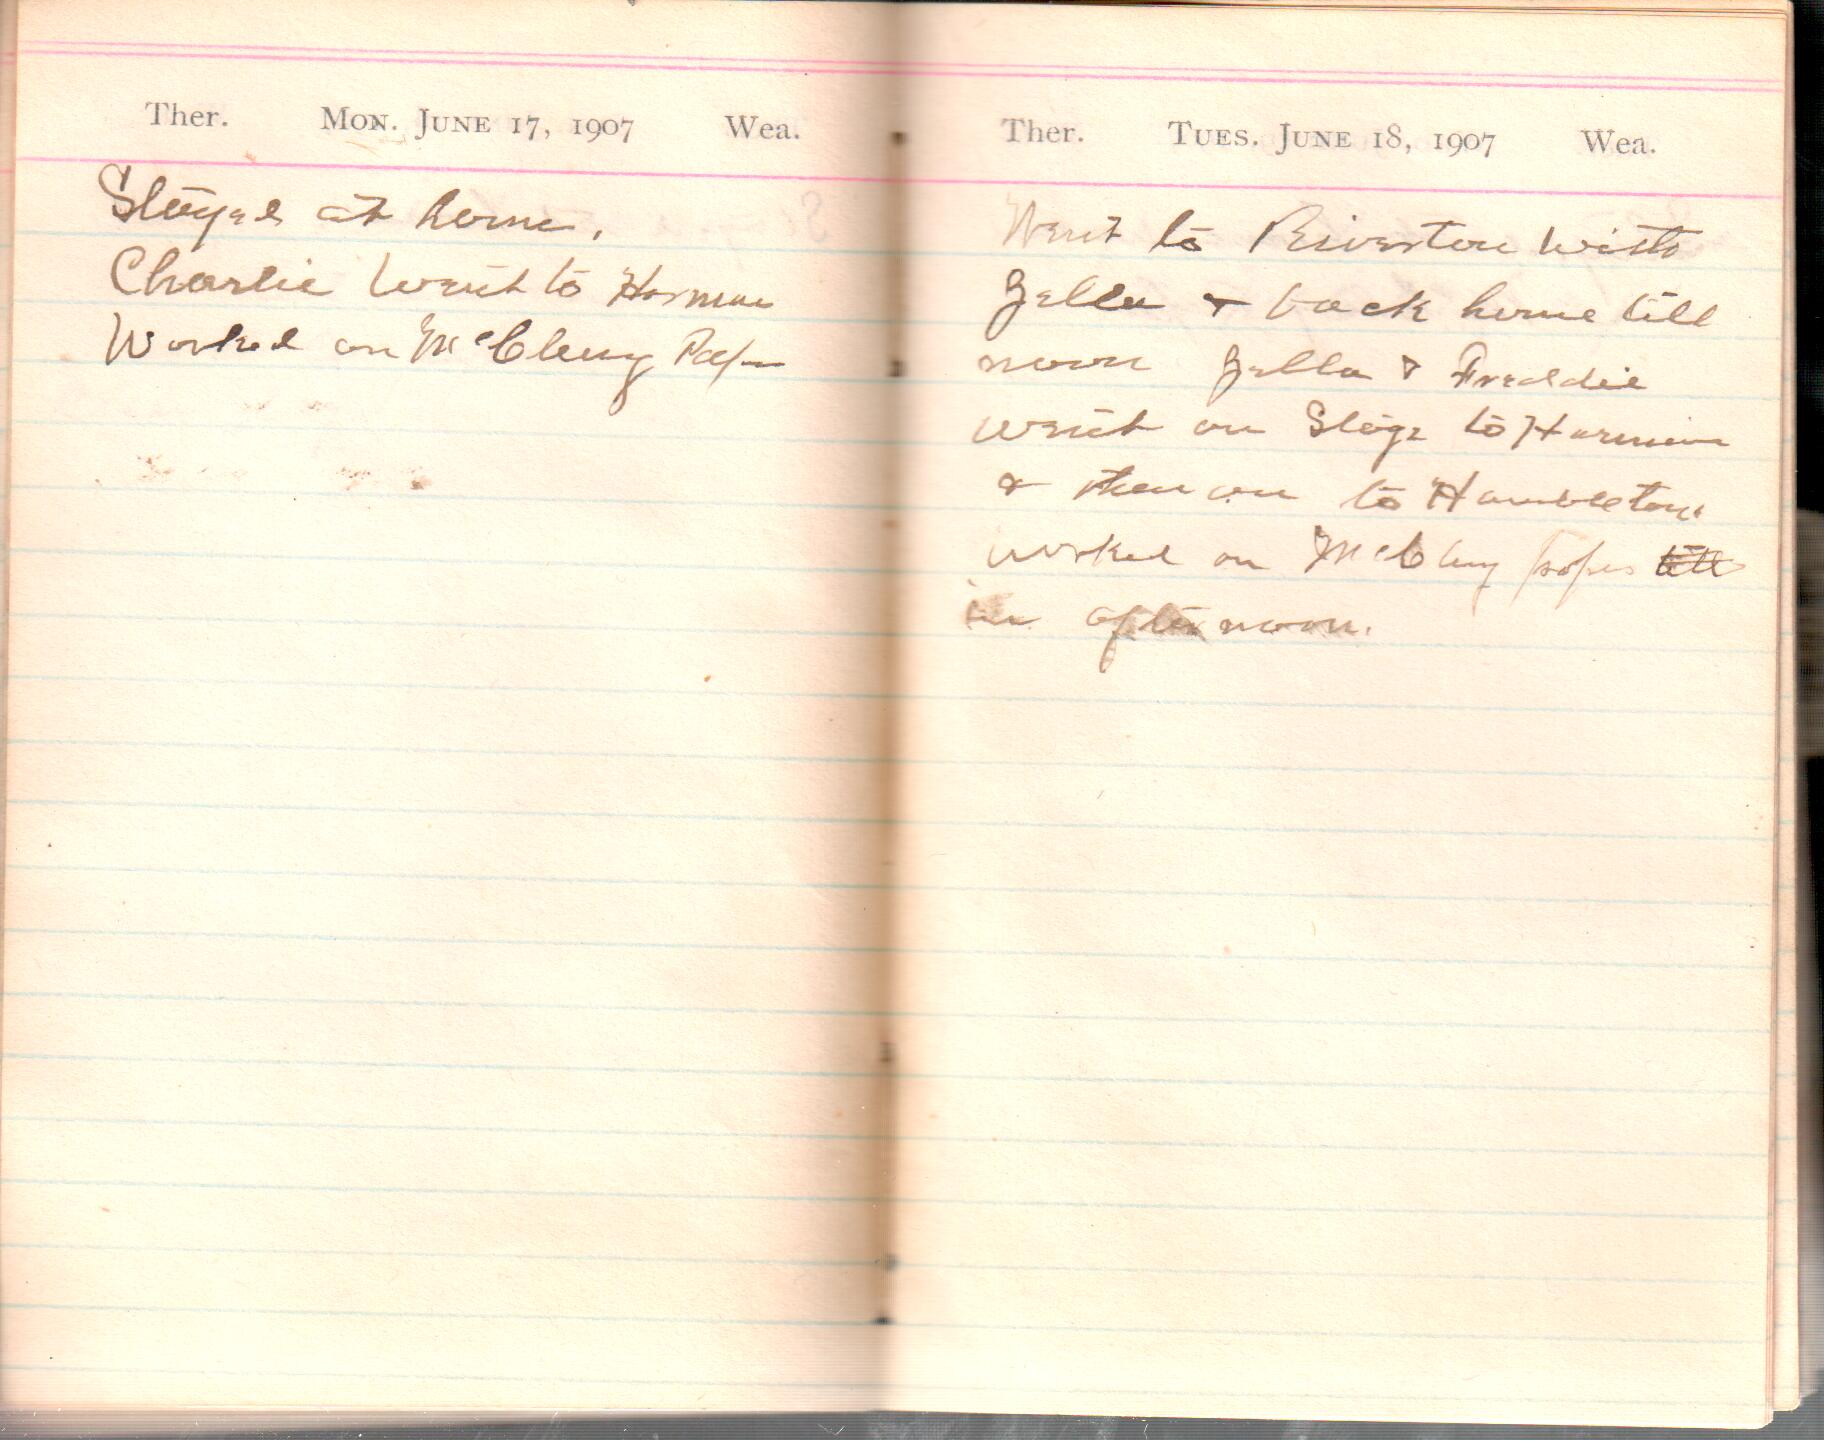 Ther. Mon. June 17, 1907 Wea.
Stayed at home.
Charlie went to Harman
Worked on McClung
Ther. Tues. June 18, 1907 Wea.
Went to Riverton with
Zella & back home till
noon Zella & Freddie
went on Stage to Harman
& then on to Hambleton.
worked on McClung papers till
in afternoon.